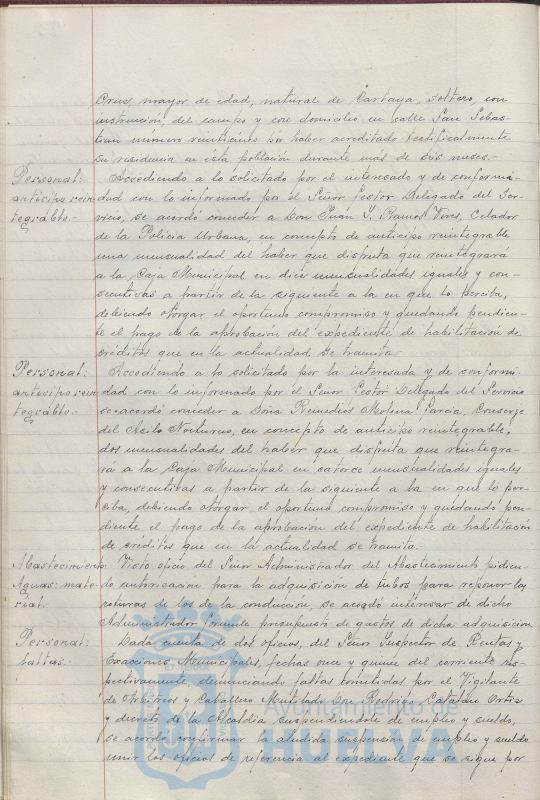 Cruz, mayor de edad, natural de Cartaya, soltero, con
instrucción, del campo y con domicilio en calle San Sebas-
tian número veinticinco por haber acreditado testificalmente
su residencia en esta población durante más de seis meses.-
Personal: Accediendo a lo solicitado por el interesado y de conformi-
anticipo rein- dad con lo informado por el Señor Gestor Delegado del Ser-
tegrable.- vicio, se acordó conceder a Don Juan J. Ramos Vives, Celador
de la Policía Urbana, en concepto de anticipo reintegrable
una mensualidad del haber que disfruta que reintegrará
a la Caja Municipal en diez mensualidades iguales y con-
secutivas a partir de la siguiente a la en que lo perciba,
debiendo otorgar el oportuno compromiso y quedando pendien-
te el pago de la aprobación del expediente de habilitación de
créditos que en la actualidad se tramita.-
Personal: Accediendo a lo solicitado por la interesada y de conformi-
anticipo rein- dad con lo informado por el Señor Gestor Delegado del Servicio
tegrable.- se acordó conceder a Doña Remedios Molina García, Conserje
del Asilo Nocturno, en concepto de anticipo reintegrable,
dos mensualidades del haber que disfruta que reintegra-
rá a la Caja Municipal en catorce mensualidades iguales
y consecutivas a partir de la siguiente a la en que lo per-
ciba, debiendo otorgar el oportuno compromiso y quedando pen-
diente el pago de la aprobación del expediente de habilitación
de créditos que en la actualidad se tramita.-
Abastecimiento Visto oficio del Señor Administrador del Abastecimiento pidien-
Aguas: mate- do autorización para la adquisición de tubos para reponer las
rial.- roturas de los de la conducción, se acordó interesar de dicho
Administrador formule presupuesto de gastos de dicha adquisición
Personal: Dada cuenta de dos oficios, del Señor Inspector de Rentas y
faltas.- Exacciones Municipales, fechas once y quince del corriente res-
pectivamente denunciando faltas cometidas por el Vigilante
de Arbitrios y Caballero Mutilado Don Rodrigo Catalán Ortiz
y decreto de la Alcaldía suspendiéndole de empleo y sueldo,
se acordó confirmar la aludida suspensión de empleo y sueldo
unir los oficios de referencia al expediente que se sigue por
Ayuntamiento de
HUELVA